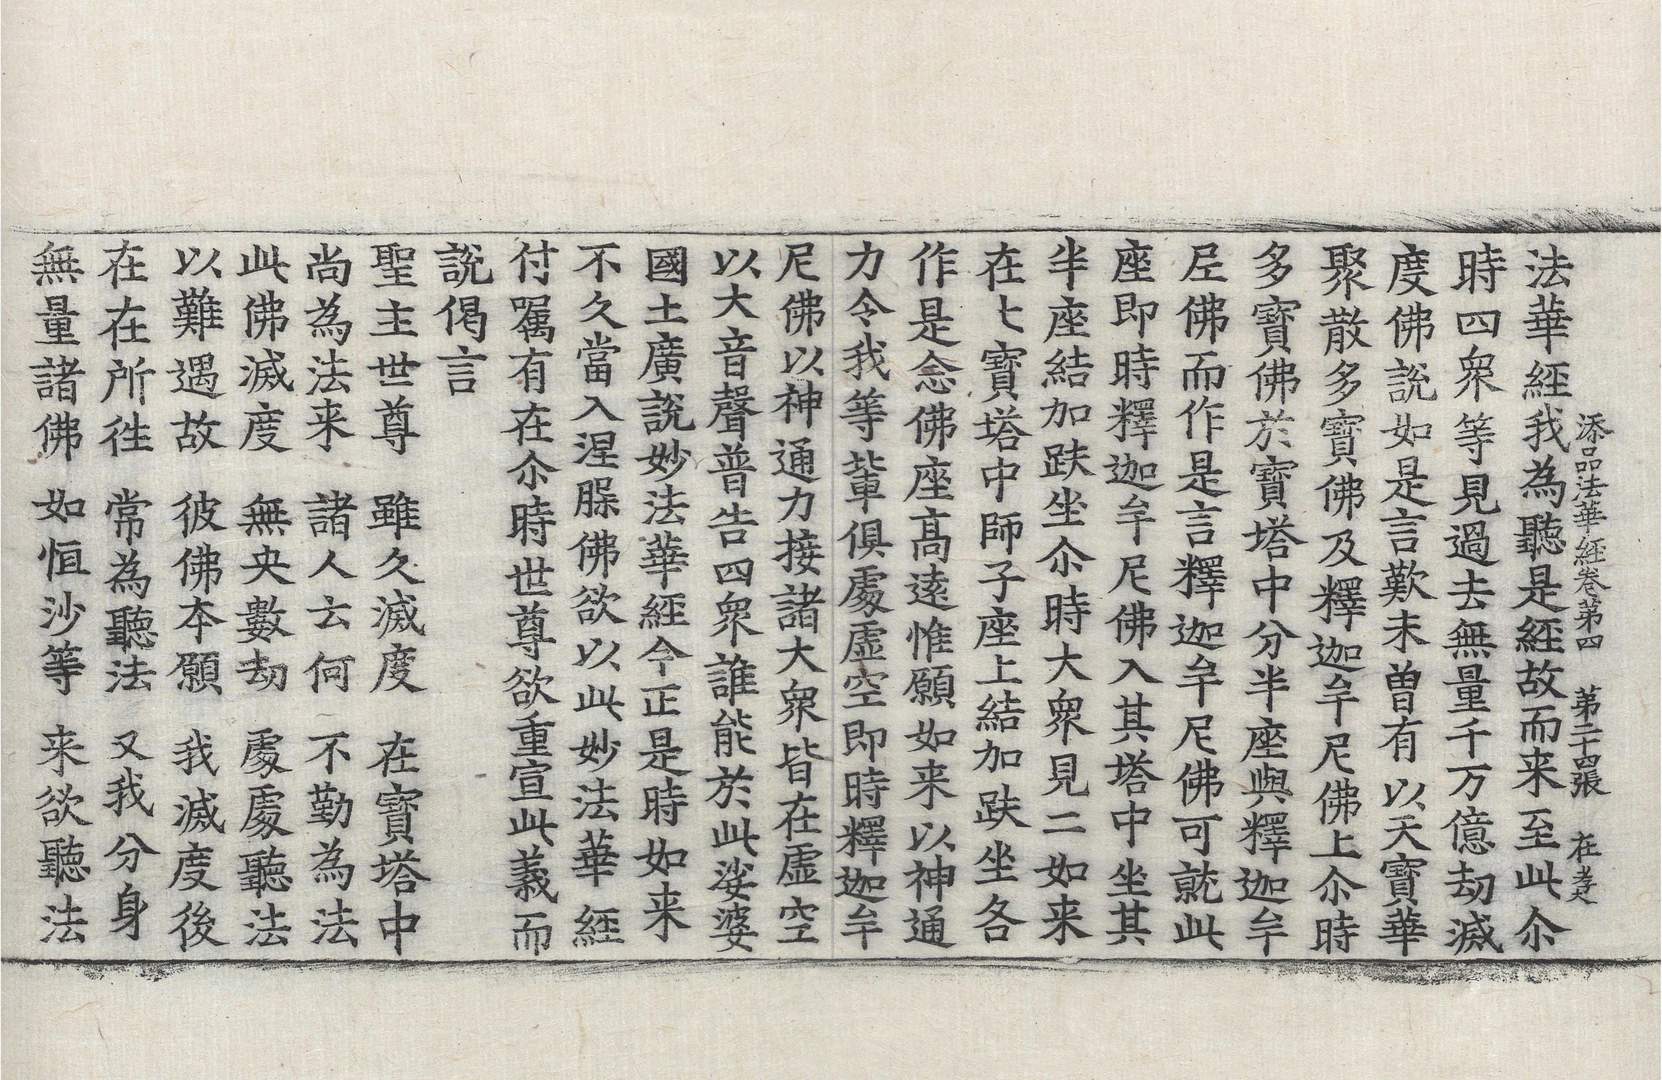 添品法華經卷第四 第二十四張 在㐲
法華經我為聽是經故而来至此尒
時四衆等見過去無量千万億劫滅
度佛說如是言歎未曾有以天寶華
聚散多寶佛及釋迦牟尼佛上尒時
多寶佛於寶塔中分半座與釋迦牟
尼佛而作是言釋迦牟尼佛可就此
座即時釋迦牟尼佛入其塔中坐其
半座結加趺坐尒時大衆見二如来
在七寶塔中師子座上結加趺坐各
作是念佛座高遠惟願如来以神通
力令我等輩俱處虛空即時釋迦牟
尼佛以神通力接諸大衆皆在虛空
以大音聲普告四衆誰能於此娑婆
國土廣說妙法華經今正是時如来
不久當入涅脲佛欲以此妙法華經
付囑有在尒時世尊欲重宣此義而
說偈言
聖主世尊 雖久滅度 在寶塔中
尚為法来 諸人云何 不勤為法
此佛滅度 無央數劫 處處聽法
以難遇故 彼佛本願 我滅度後
在在所徃 常為聽法 又我分身
無量諸佛 如恒沙等 来欲聽法